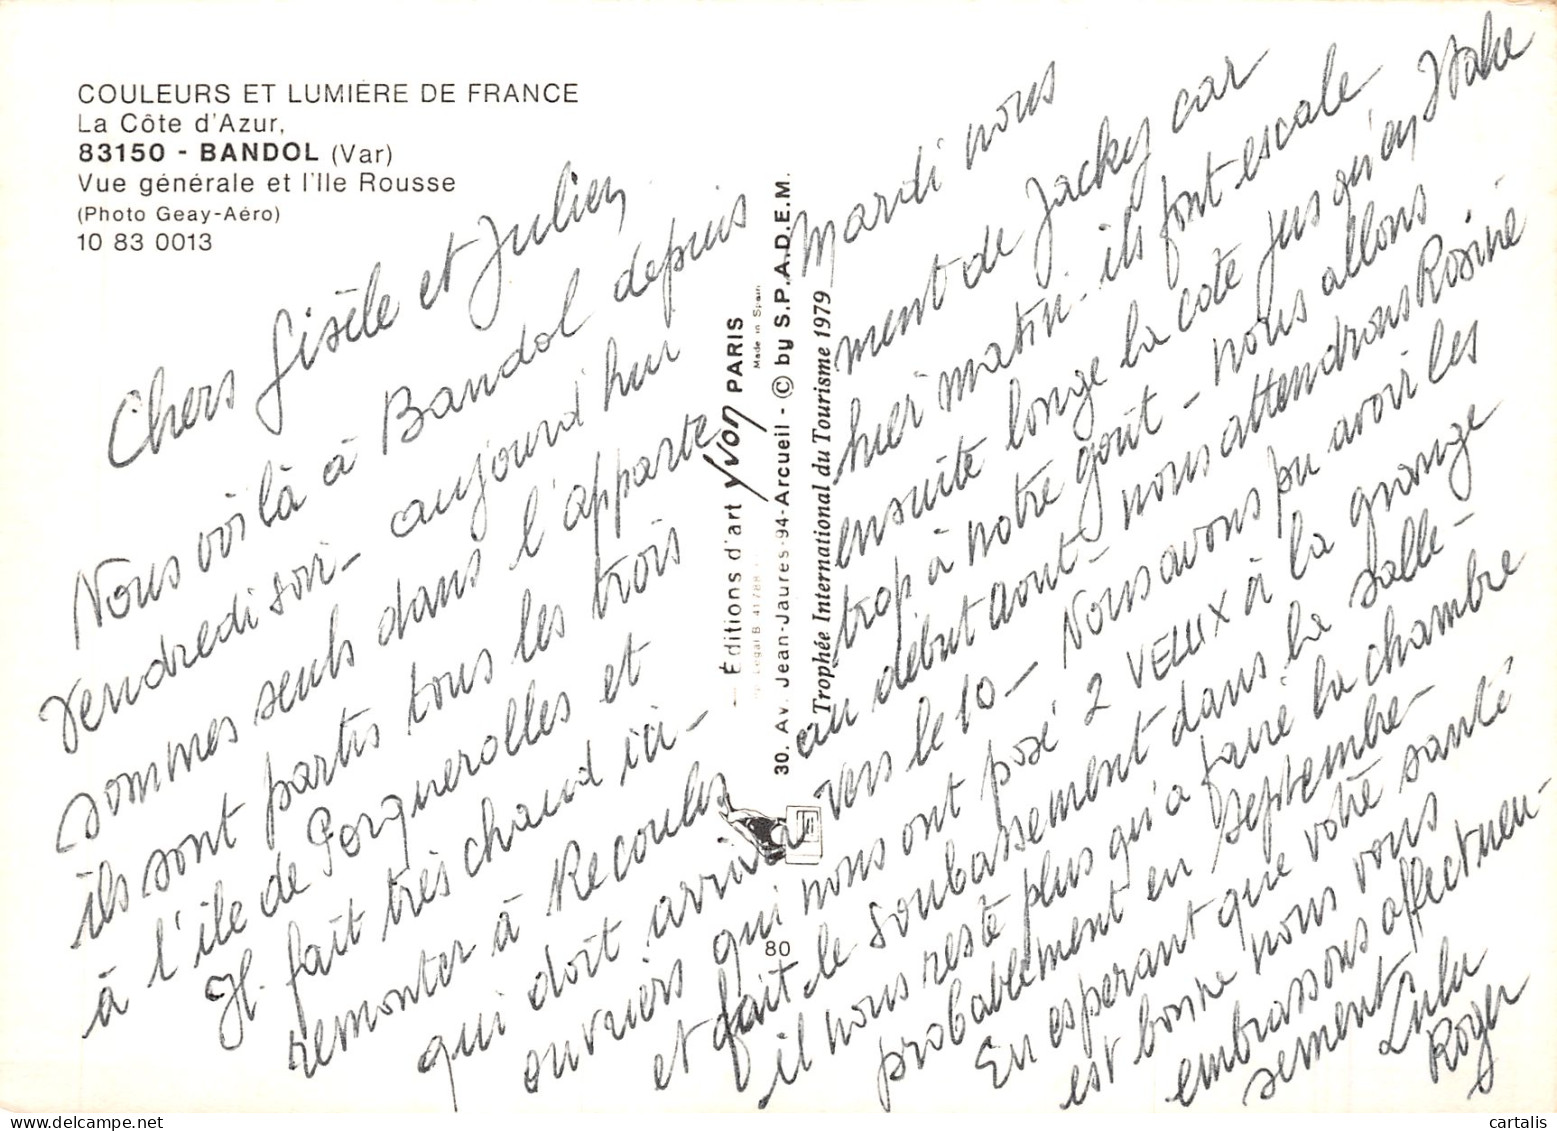 COULEURS ET LUMIÈRE DE FRANCE
La Côte d'Azur,
83150 - BANDOL (Var)
Vue générale et l'Ile Rousse
(Photo Geay-Aéro)
10 83 0013
Chers Gisèle et Julien
Nous voilà à Bandol depuis
vendredi soir - aujourd'hui
sommes seuls dans l'apparte
ils sont partis tous les trois
à l'île de Porquerolles et
Il fait très chaud ici -
Mardi nous
ment de Jacky car
hier matin. ils font escale
ensuite longe la cote jus qu'en Italie
trop à notre goût - nous allons
au début aout - nous attendrons Rosine
remonter à Recoules
vers le 10 - Nous avons pu avoir les
qui doit arriver
ouvriers qui nous ont posé 2 VELUX à la grange
et fait le soubassement dans la salle -
il nous reste plus qu'a faire la chambre
probablement en septembre -
En esperant que votre santé
est bonne nous vous
embrassons affectueu-
sement
Lulu
Roger
Éditions d'art Yvon PARIS
Made in Spain
30. Av. Jean-Jaurès-94-Arcueil - © by S.P.A.D.E.M.
Trophée International du Tourisme 1979
80
cartalis